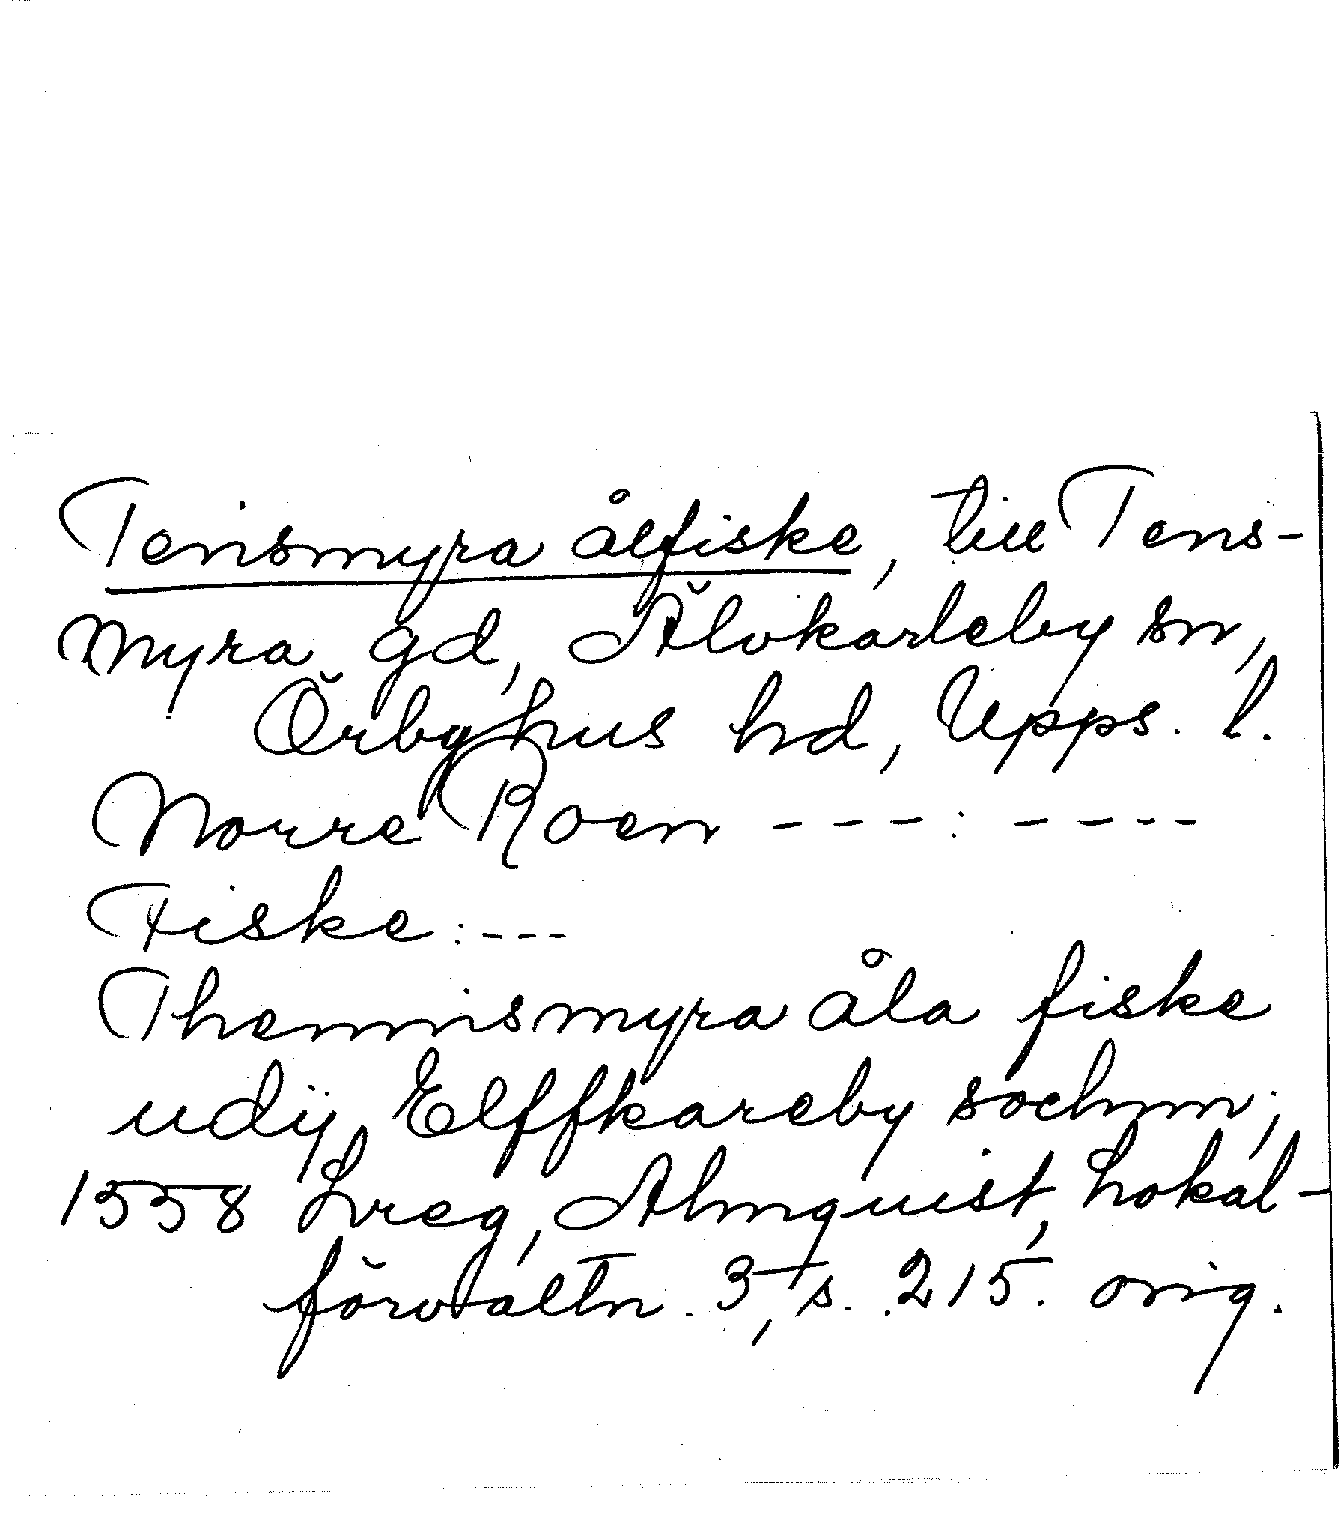 Tensmyra ålfiske, till Tens-
myra gd, Älvkarleby sn,
Örbyhus hd, Upps. l.
Norre Roen ---: ----
Fiske: ---
Thennismyra åla fiske
udij Elffkareby sochnn;
1558 Lreg, Almquist, Lokal-
förvaltn. 3, s. 215. orig.